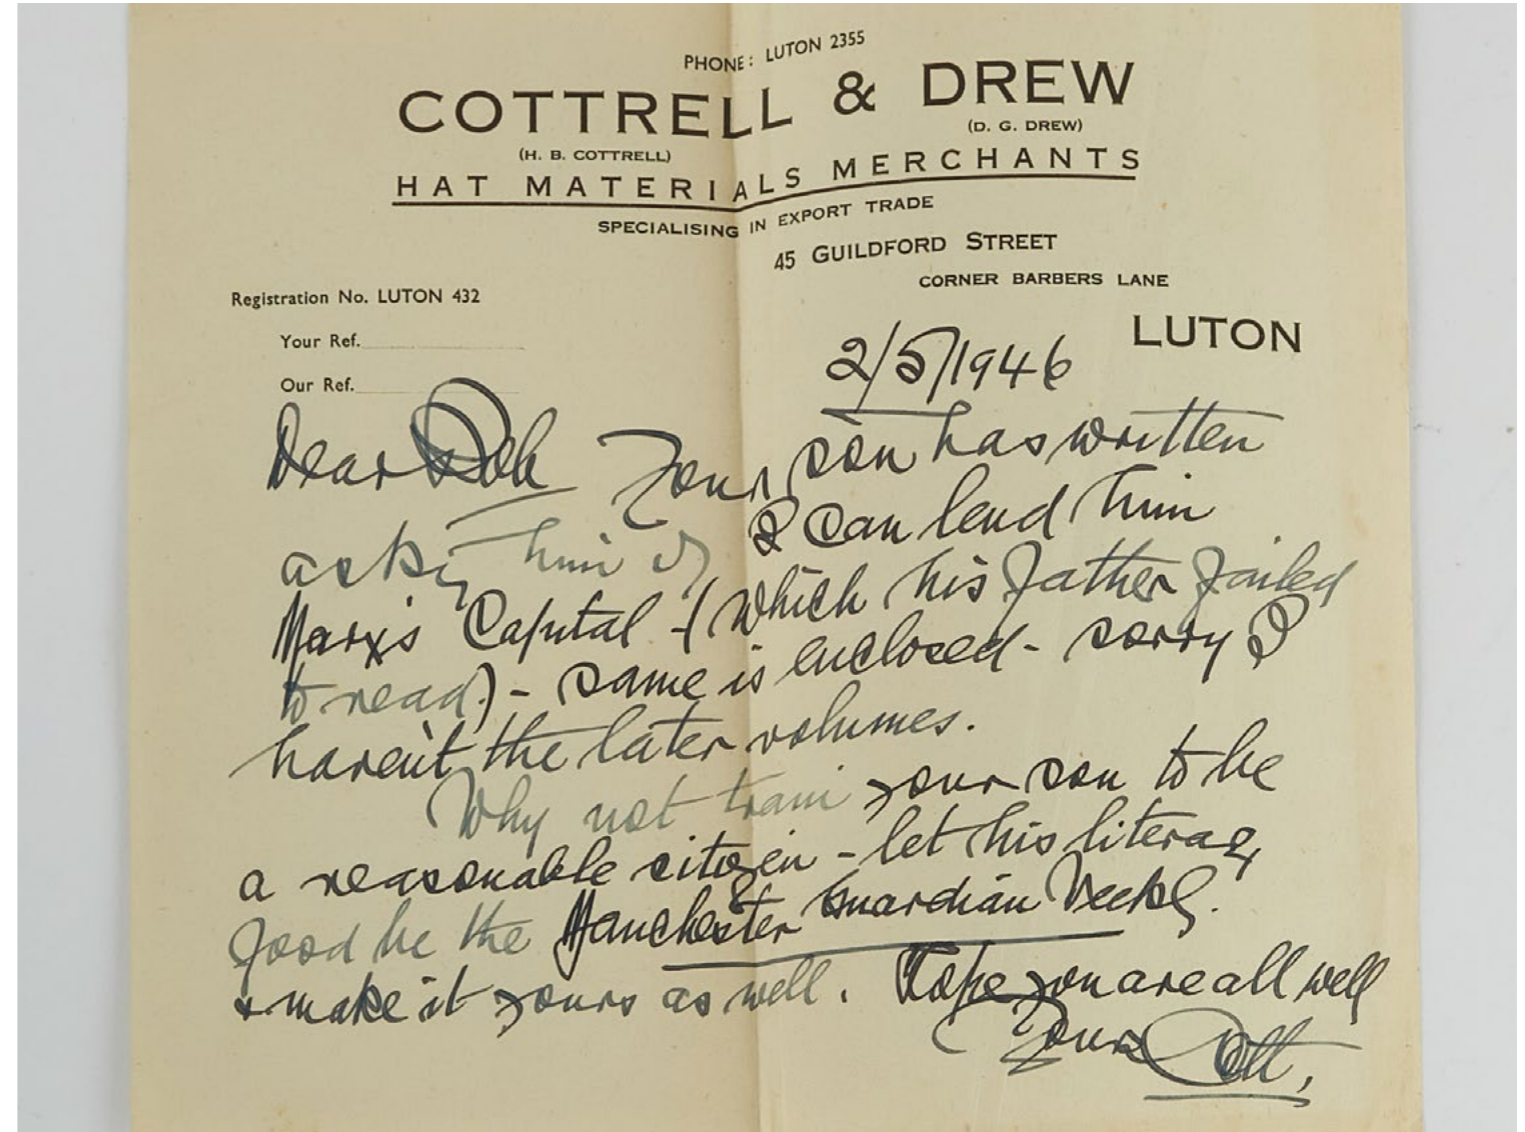 PHONE: LUTON 2355
COTTRELL & DREW
(H. B. COTTRELL) (D. G. DREW)
HAT MATERIALS MERCHANTS
SPECIALISING IN EXPORT TRADE
45 GUILDFORD STREET
CORNER BARBERS LANE
Registration No. LUTON 432
LUTON
Your Ref.
2/5/1946
Our Ref.
Dear Your son has written
asking him if I can lend him
Marx's Capital - (which his father failed
to read) - same is enclosed - sorry I
haven't the later volumes.
Why not train your son to be
a reasonable citizen - let his literary
food be the Manchester Guardian Weekly.
& make it yours as well. Hope you are all well
Yours Cott,